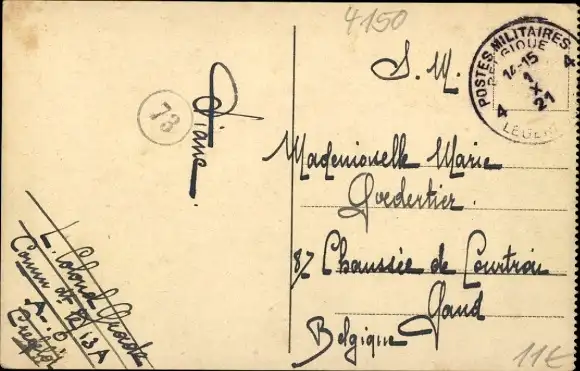 4150
S. M.
POSTES MILITAIRES
BELGIQUE
14-15
1
X
21
4 4
LEGER
73
Diane.
Mademoiselle Marie
Goedertier.
87 Chaussée de Courtrai
Gand
Belgique
L. Colond
A. O
11€